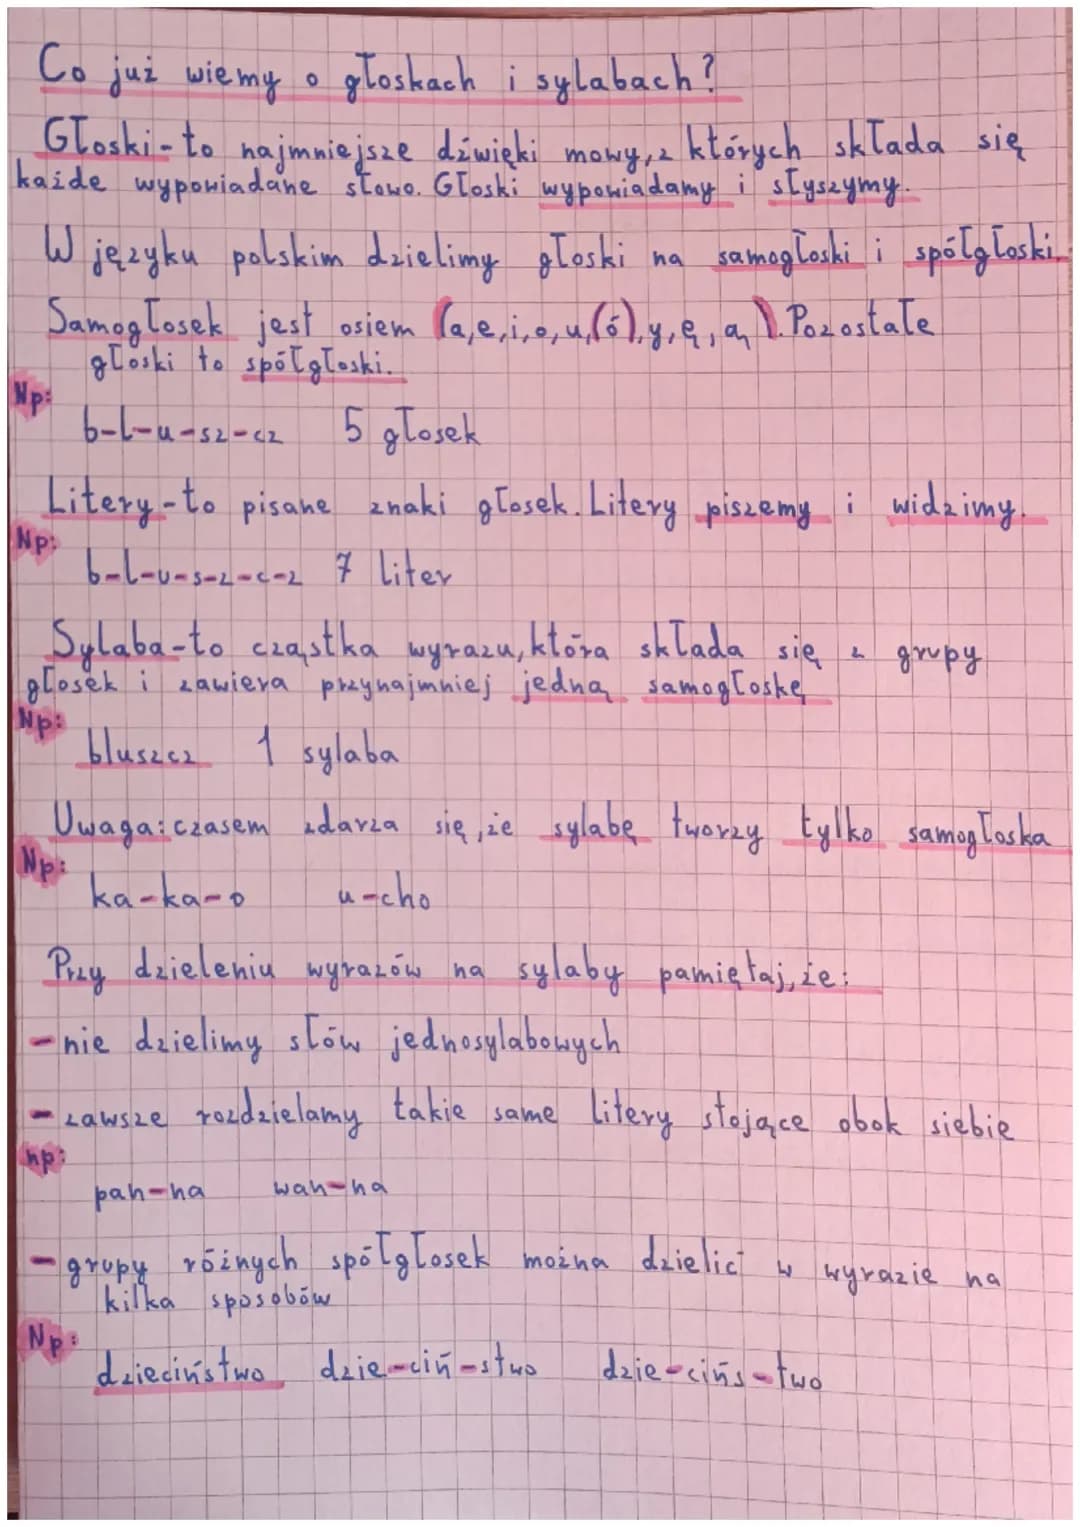 Co już wiemy o głoskach i sylabach?
Głoski - to najmniejsze dźwięki mowy, z których składa się
każde wypowiadane słowo. Głoski wypowiadamy i słyszymy.
W języku polskim dzielimy głoski na samogłoski i spółgłoski.
Samogłosek jest osiem (a,e,i,o,u,(ó),y,ę,ą). Pozostałe
głoski to spółgłoski.
Np:
b-l-u-sz-cz 5 głosek
Litery - to pisane znaki głosek. Litery piszemy i widzimy.
Np:
b-l-u-s-z-c-z 7 liter
Sylaba - to cząstka wyrazu, która składa się z grupy
głosek i zawiera przynajmniej jedną samogłoskę
Np:
bluszcz 1 sylaba
Uwaga: czasem zdarza się, że sylabę tworzy tylko samogłoska
Np:
ka-ka-o u-cho
Przy dzieleniu wyrazów na sylaby pamiętaj, że:
- nie dzielimy słów jednosylabowych
- zawsze rozdzielamy takie same litery stojące obok siebie
np:
pan-na wan-na
- grupy różnych spółgłosek można dzielić w wyrazie na
kilka sposobów
Np:
dzieciństwo dzie-ciń-stwo dzie-cińs-two